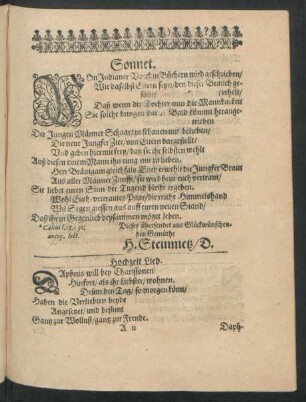 Sonnet.
Von Indianer Volck in Büchern wird geschrieben/
Wie daselbst Eltern seyn/ den dieser Brauch ge-
Daß wenn die Tochter nun die Mannbarkeit
Sie solche bringen bald
Der Jungen Männer Schaar/ zu schauen
Die neue Jungfer Zier/ von Eltern dargestellt/
Und geben ihr frey/ daß sie ihr selbsten wehlt
Auß diesen einen Mann ihr ewig
Herr Bräutgam gleichfals Euch erwehlt die Jungfer Braut
Aus aller Männer Zunfft/ sie wird heut euch vertraut/
Sie liebet euren Sinn der Tugend bleibt ergeben.
Wohl Euch/ vertrautes Paar/ die reiche Himmels hand
Woll Segen giessen aus auff euren neuen Stand/
Daß ihr in beysammen mögt leben.
Dieses übersendet aus Glückwünschen-
den Gemüthe
H. Steinmetz/ D.
antiq. lect.
Hochzeit Lied.
Daphnis will bey Charitionen
Hinfort/ als ihr Liebster/ wohnen.
Drüm den Tag/ so morgen kömt/
Haben die Verliebten beyde
Angesetzt/ und bestimt
Gantz zur Wollust/ gantz zur Freude.
A ii Daph-